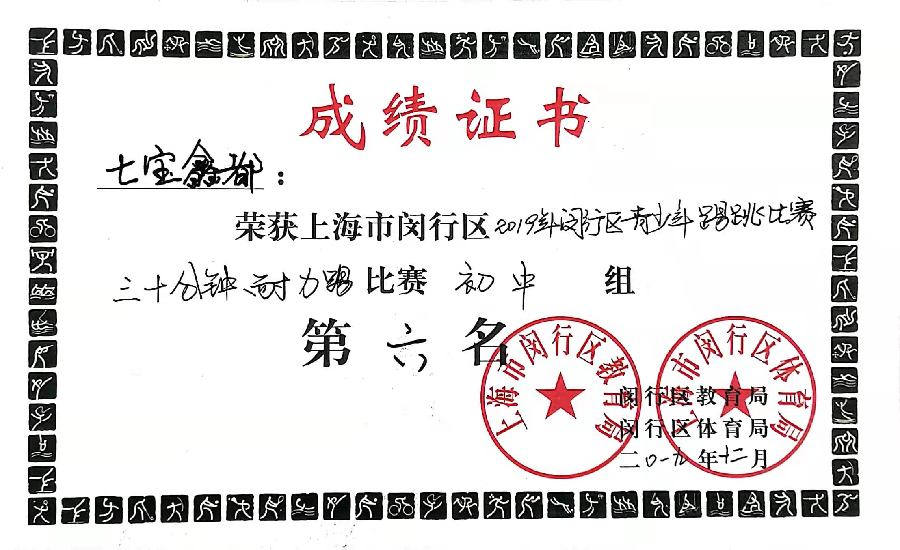 成绩证书
七宝鑫都：
荣获上海市闵行区2019年闵行区青少年踢跳比赛
三十分钟耐力踢比赛 初中 组
第六名
上海市闵行区教育局
上海市闵行区体育局
闵行区教育局
闵行区体育局
二0一九年十二月